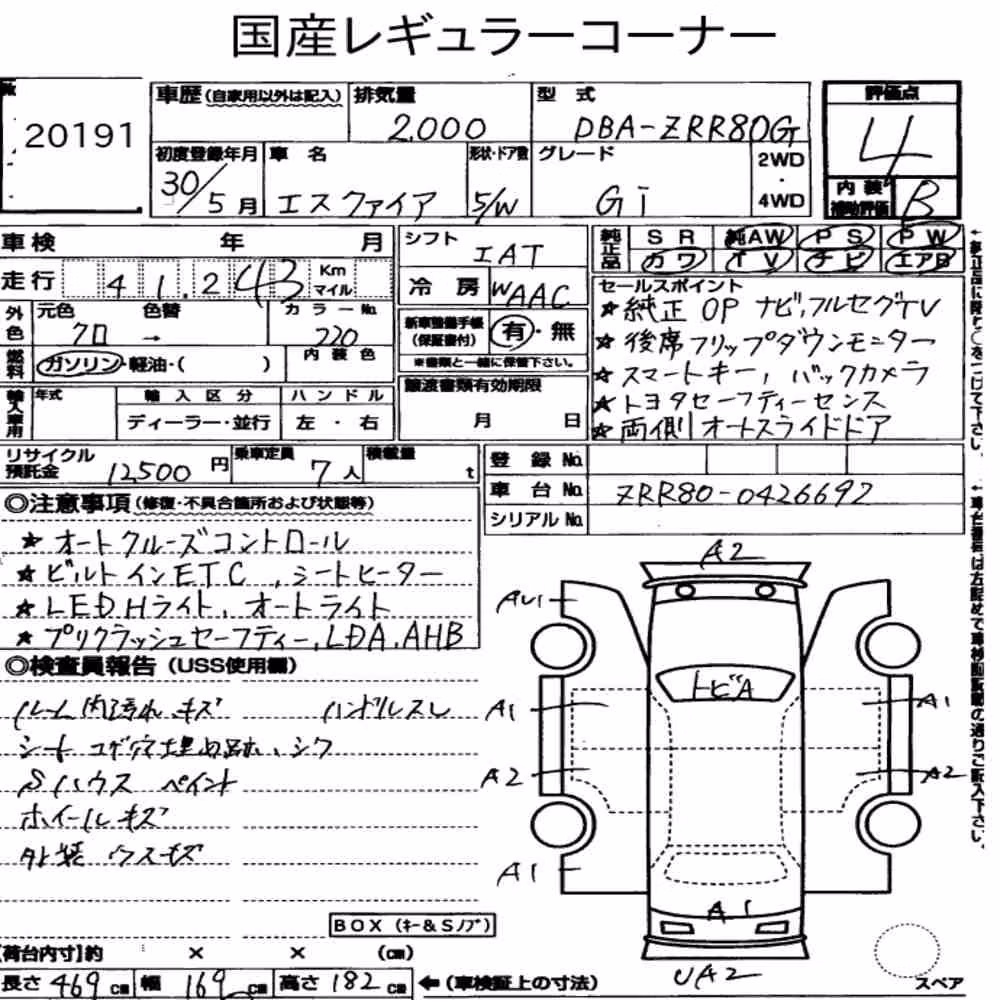 国産レギュラーコーナー
20191
車歴(自家用以外は記入)
排気量
2.000
型 式
DBA-ZRR80G
評価点
4
内装
補助評価
B
初度登録年月
30/5月
車 名
エスクァイア
形状・ドア数
5/W
グレード
Gi
2WD
・
4WD
車検 年 月
走行 41.243 Km マイル
シフト
IAT
冷房 WAAC
純正品
SR 純AW PS PW
カワ TV ナビ エアB
外色
元色 色替 カラーNo.
クロ → 220
燃料
ガソリン・軽油・( )
内装色
新車整備手帳
(保証書付)
有・無
※書類と一緒に保管下さい。
セールスポイント
★純正OPナビ,フルセグTV
★後席フリップダウンモニター
★スマートキー,バックカメラ
★トヨタセーフティーセンス
★両側オートスライドドア
輸入車用
年式
輸入区分
ハンドル
ディーラー・並行
左・右
譲渡書類有効期限
月 日
リサイクル
預託金
12500円
乗車定員
7人
積載量
t
登録No.
車台No. ZRR80-0426692
シリアルNo.
◎注意事項(修復・不具合箇所および状態等)
★オートクルーズコントロール
★ビルトインETC,シートヒーター
★LED.Hライト,オートライト
★プリクラッシュセーフティー,LDA,AHB
◎検査員報告(USS使用欄)
ルーム内汚れキズ ハンドルスレ
シートコゲ穴埋め跡、シワ
Sハウス ペイント
ホイールキズ
外装 ウスキズ
BOX(キー&Sノブ)
A2
AU1
トビA
A1
A1
A2
A2
A1
A1
UA2
スペア
【荷台内寸】約 × × (cm)
長さ469cm 幅169cm 高さ182cm ←(車検証上の寸法)